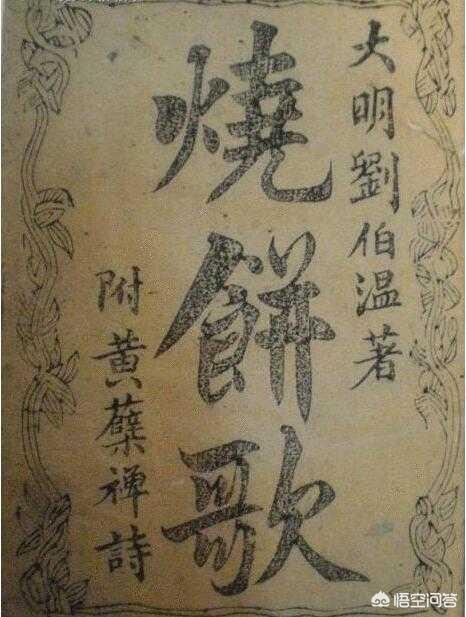 大明劉伯温著
燒餅歌
附黄蘗禅詩
悟空问答